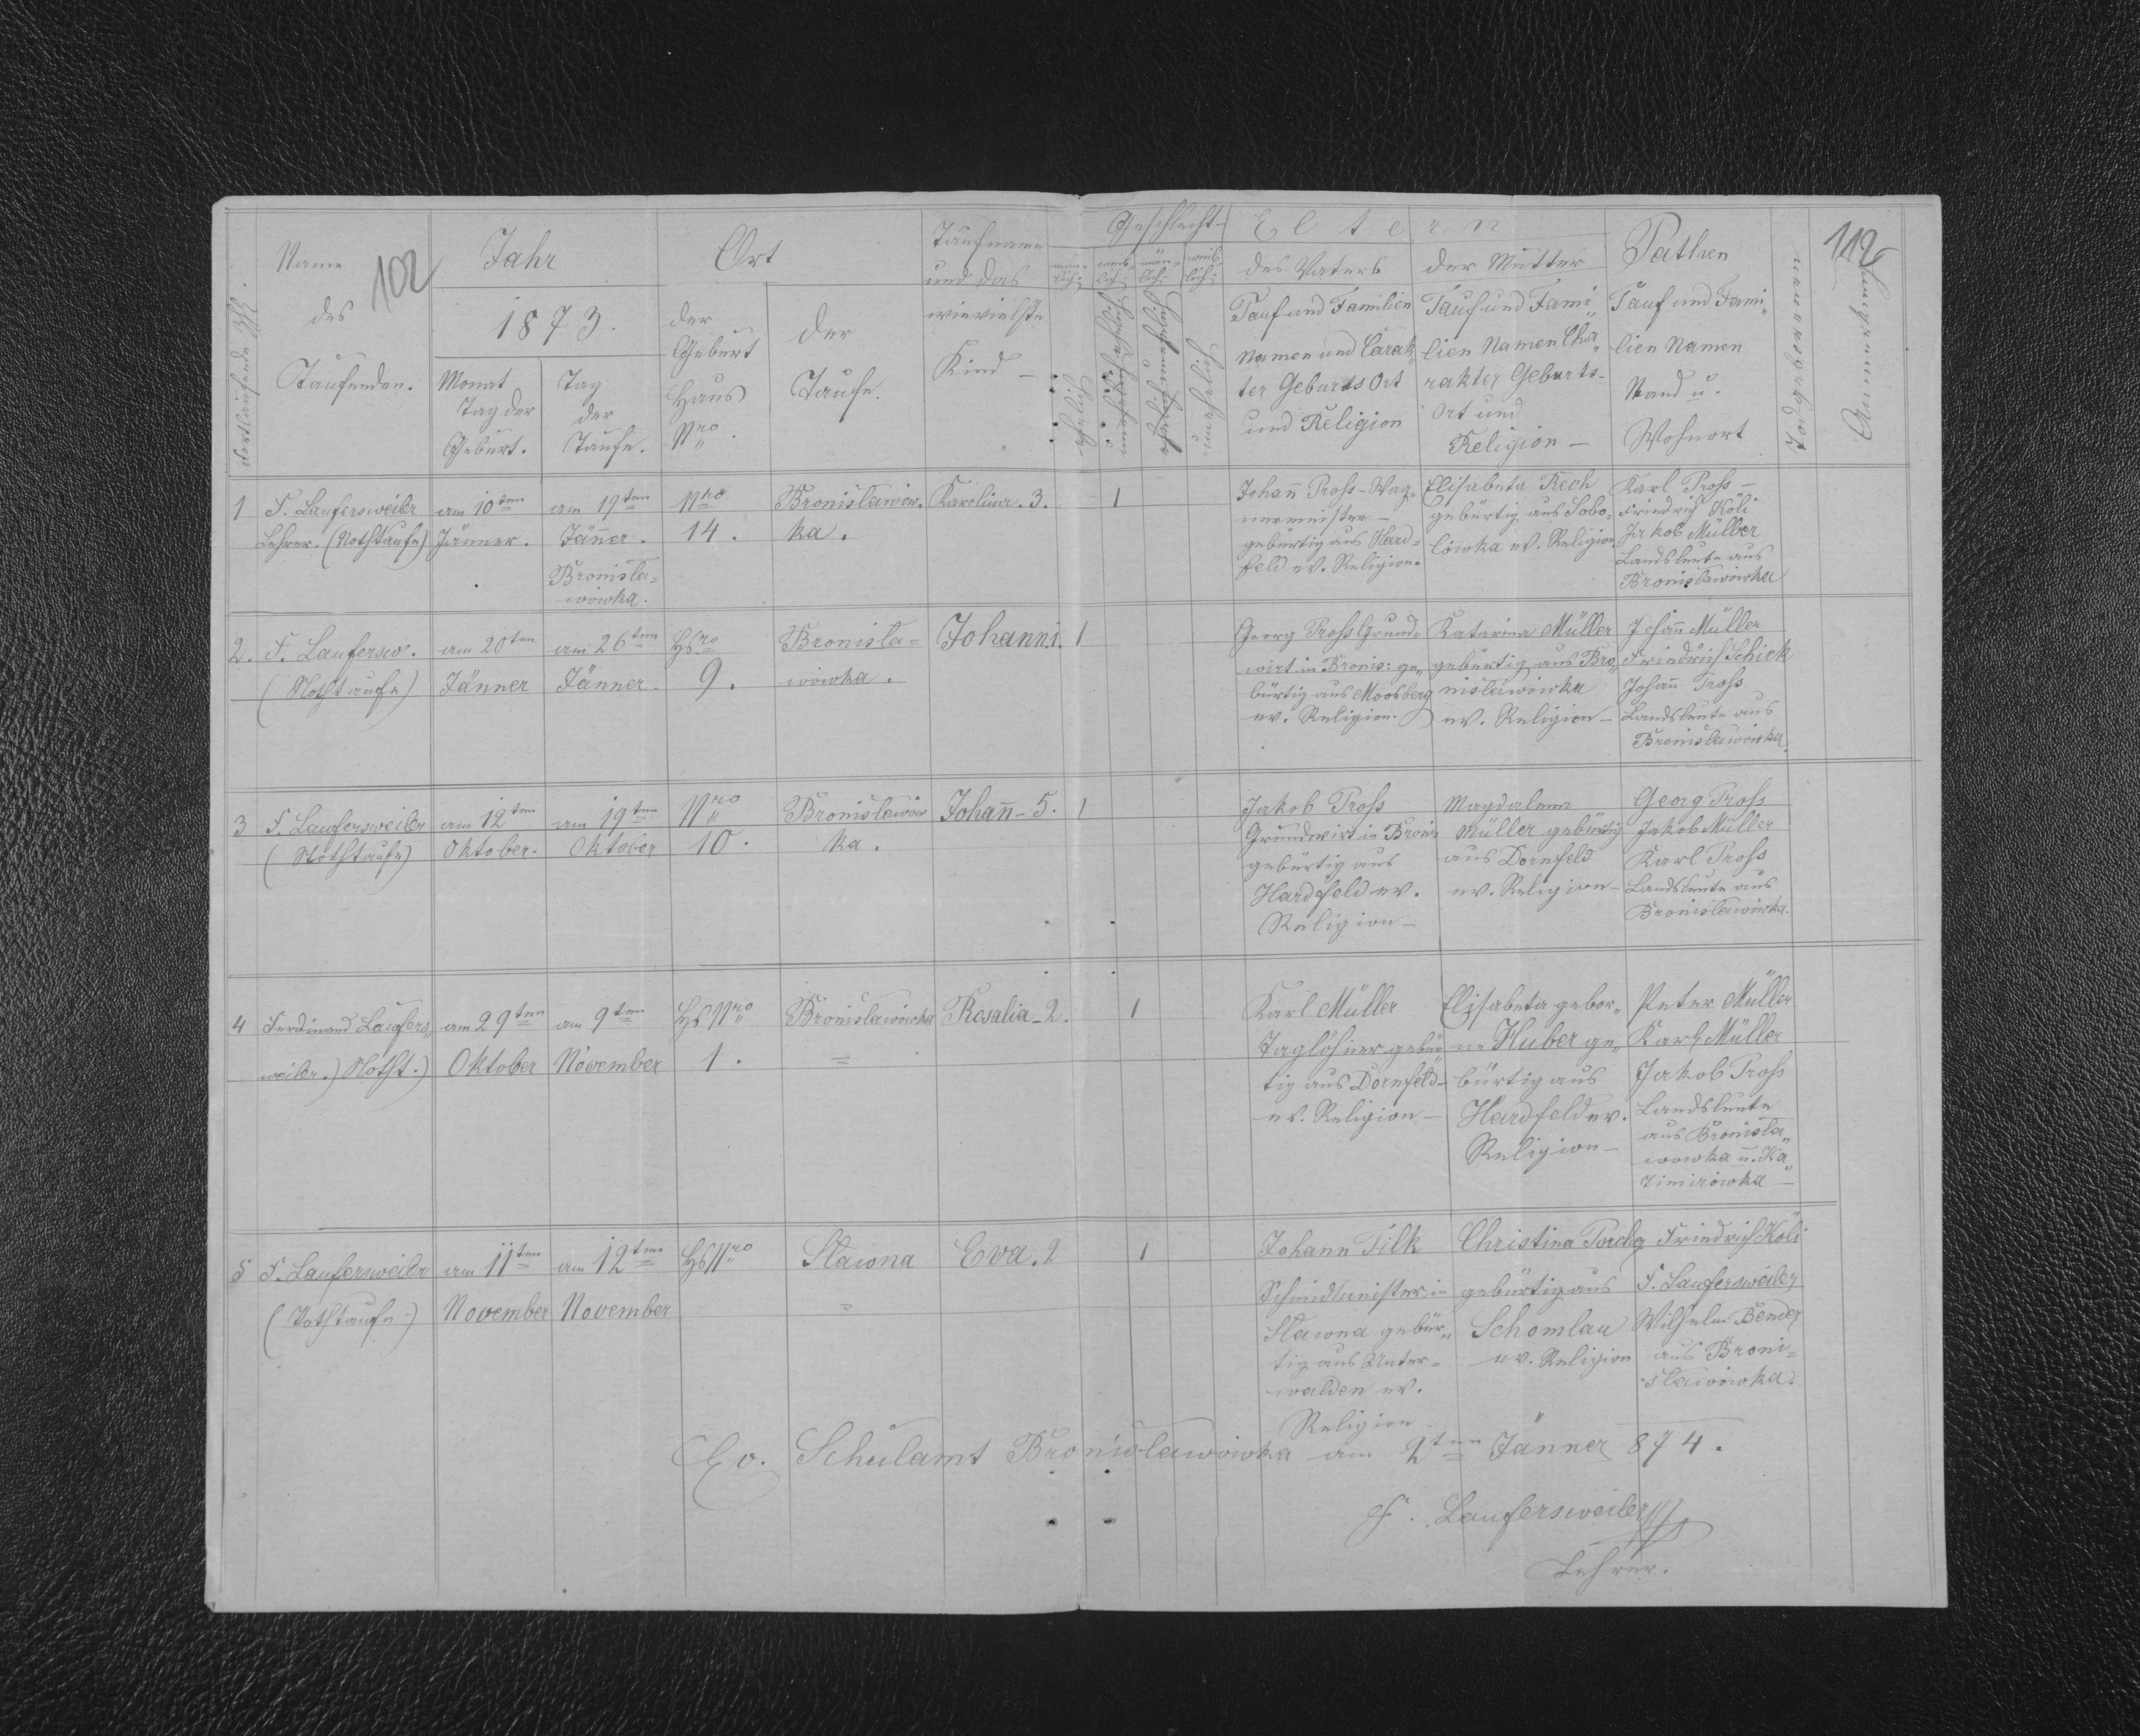 Name
des
Taufenden.
102
Jahr
1873.
Monat
Tag der
Geburt.
Tag
der
Taufe.
Ort
der
Geburt
Haus
Nro.
der
Taufe.
Taufname
und das
wievielste
Kind –
Geschlecht
män-
lich
weib-
lich
män-
lich
weib-
lich
unehelich
Eltern
des Vaters
Tauf und Familien
Namen und Carak„
ter Geburts Ort
und Religion
der Mutter
Tauf und Fami„
lien Namen Cha„
rakter Geburts-
Ort und
Religion –
Pathen
Tauf und Fami„
lien Namen
Stand u.
Wohnort
Todgeborenen
112
Anmerkung
Fortlaufende
1
F. Laufersweiler
Lehrer. (Nothtaufe)
am 10ten
Jänner.
am 19ten
Jänner.
Bronisla=
wowka.
Nro
14.
Bronislawow.
ka.
Karolina. 3.
1
Johann Pross – Wag„
nermeister –
gebürtig aus Hard=
feld ev. Religion.
Elisabeta Rech
gebürtig aus Sobo=
lowka ev. Religion.
Karl Pross –
Friedrich Köli
Jakob Müller
Landsleute aus
Bronislawowka
2.
F. Laufersw.
(Nothtaufe)
am 20ten
Jänner
am 26ten
Jänner.
Hsro
9.
Bronisla=
wowka.
Johann. 1.
1
Georg Pross Grund„
wirt in Bronis: ge„
bürtig aus Moosberg
ev. Religion.
Katarina Müller
gebürtig aus Bro„
nislawowka
ev. Religion –
Johann Müller
Friedrich Schick
Johann Pross
Landsleute aus
Bronislawowka.
3
F. Laufersweiler
(Nothtaufe)
am 12ten
Oktober.
am 19ten
Oktober
Nro
10.
Bronislawow
ka.
Johann – 5.
1
Jakob Pross
Grundwirt in Bronis
gebürtig aus
Hardfeld ev.
Religion –
Magdalena
Müller gebürtig
aus Dornfeld
ev. Religion –
Georg Pross
Jakob Müller
Karl Pross
Landsleute aus
Bronislawowka.
4
Ferdinand Laufers„
weiler.) Notht.)
am 29ten
Oktober
am 9ten
November
Hs Nro
1.
Bronislawowka
=
Rosalia – 2.
1
Karl Müller
Taglöhner gebür„
tig aus Dornfeld –
ev. Religion –
Elisabeta gebor„
ne Huber ge„
bürtig aus
Hardfeld ev.
Religion –
Peter Müller
Karl Müller
Jakob Pross
Landsleute
aus Bronisla„
wowka u. Ka„
zimirowka –
5
F. Laufersweiler
(Nothtaufe –)
am 11ten
November
am 12ten
November
Hs Nro
Slawna
=
Eva. 2
1
Johann Filk
in
Slawna gebür„
tig aus Unter=
walden ev.
Religion
Christina
gebürtig aus
Schomlau
ev. Religion
Friedrich Köli
F. Laufersweiler
Wilhelm Bender
aus Broni=
slawowka.
Ev. Schulamt Bronislawowka am 2ten Jänner 874.
F. Laufersweiler
Lehrer.